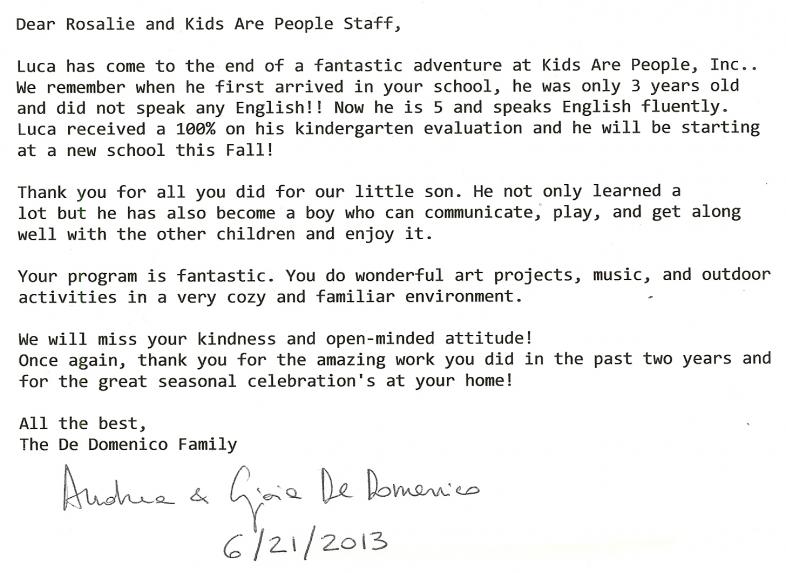 Dear Rosalie and Kids Are People Staff,
Luca has come to the end of a fantastic adventure at Kids Are People, Inc..
We remember when he first arrived in your school, he was only 3 years old
and did not speak any English!! Now he is 5 and speaks English fluently.
Luca received a 100% on his kindergarten evaluation and he will be starting
at a new school this Fall!
Thank you for all you did for our little son. He not only learned a
lot but he has also become a boy who can communicate, play, and get along
well with the other children and enjoy it.
Your program is fantastic. You do wonderful art projects, music, and outdoor
activities in a very cozy and familiar environment.
We will miss your kindness and open-minded attitude!
Once again, thank you for the amazing work you did in the past two years and
for the great seasonal celebration's at your home!
All the best,
The De Domenico Family
Andrea & Gioia De Domenico
6/21/2013